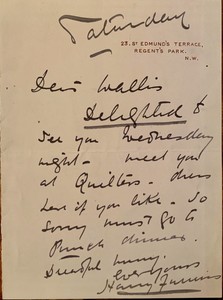 Saturday
23. ST EDMUND'S TERRACE,
REGENT'S PARK.
N.W.
Dear Wallis
Delighted to
see you Wednesday
night - meet you
at Quilters -
if you like. So
sorry must go to
Punch dinner.
Dreadful hurry.
Ever yours
Harry Furniss